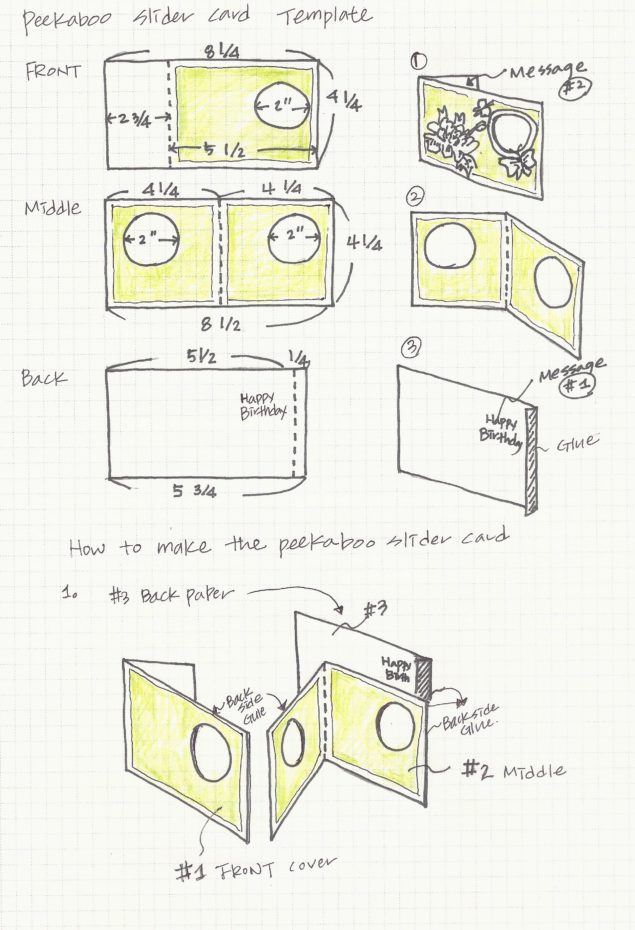 Peekaboo Slider card Template
8 1/4
FRONT
2 3/4
2"
4 1/4
5 1/2
① Message
#2
Middle
4 1/4
4 1/4
2"
2"
4 1/4
8 1/2
②
Back
5 1/2
1/4
Happy
Birthday
5 3/4
③
Message
#1
Happy
Birthday
Glue
How to make the peekaboo slider card
1. #3 Back paper
#3
Happy
Birth
Back
side
Gule
Backside
Glue.
#2 Middle
#1 FRONT cover